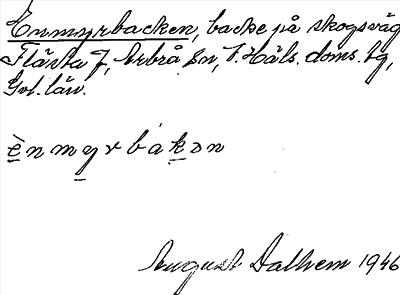 Enmyrbacken, backe på skogsväg
Flästa 7, Arbrå sn, V. Häls. doms. tg,
Gvl. län.
ènmyrbakən
August Dalhem 1946